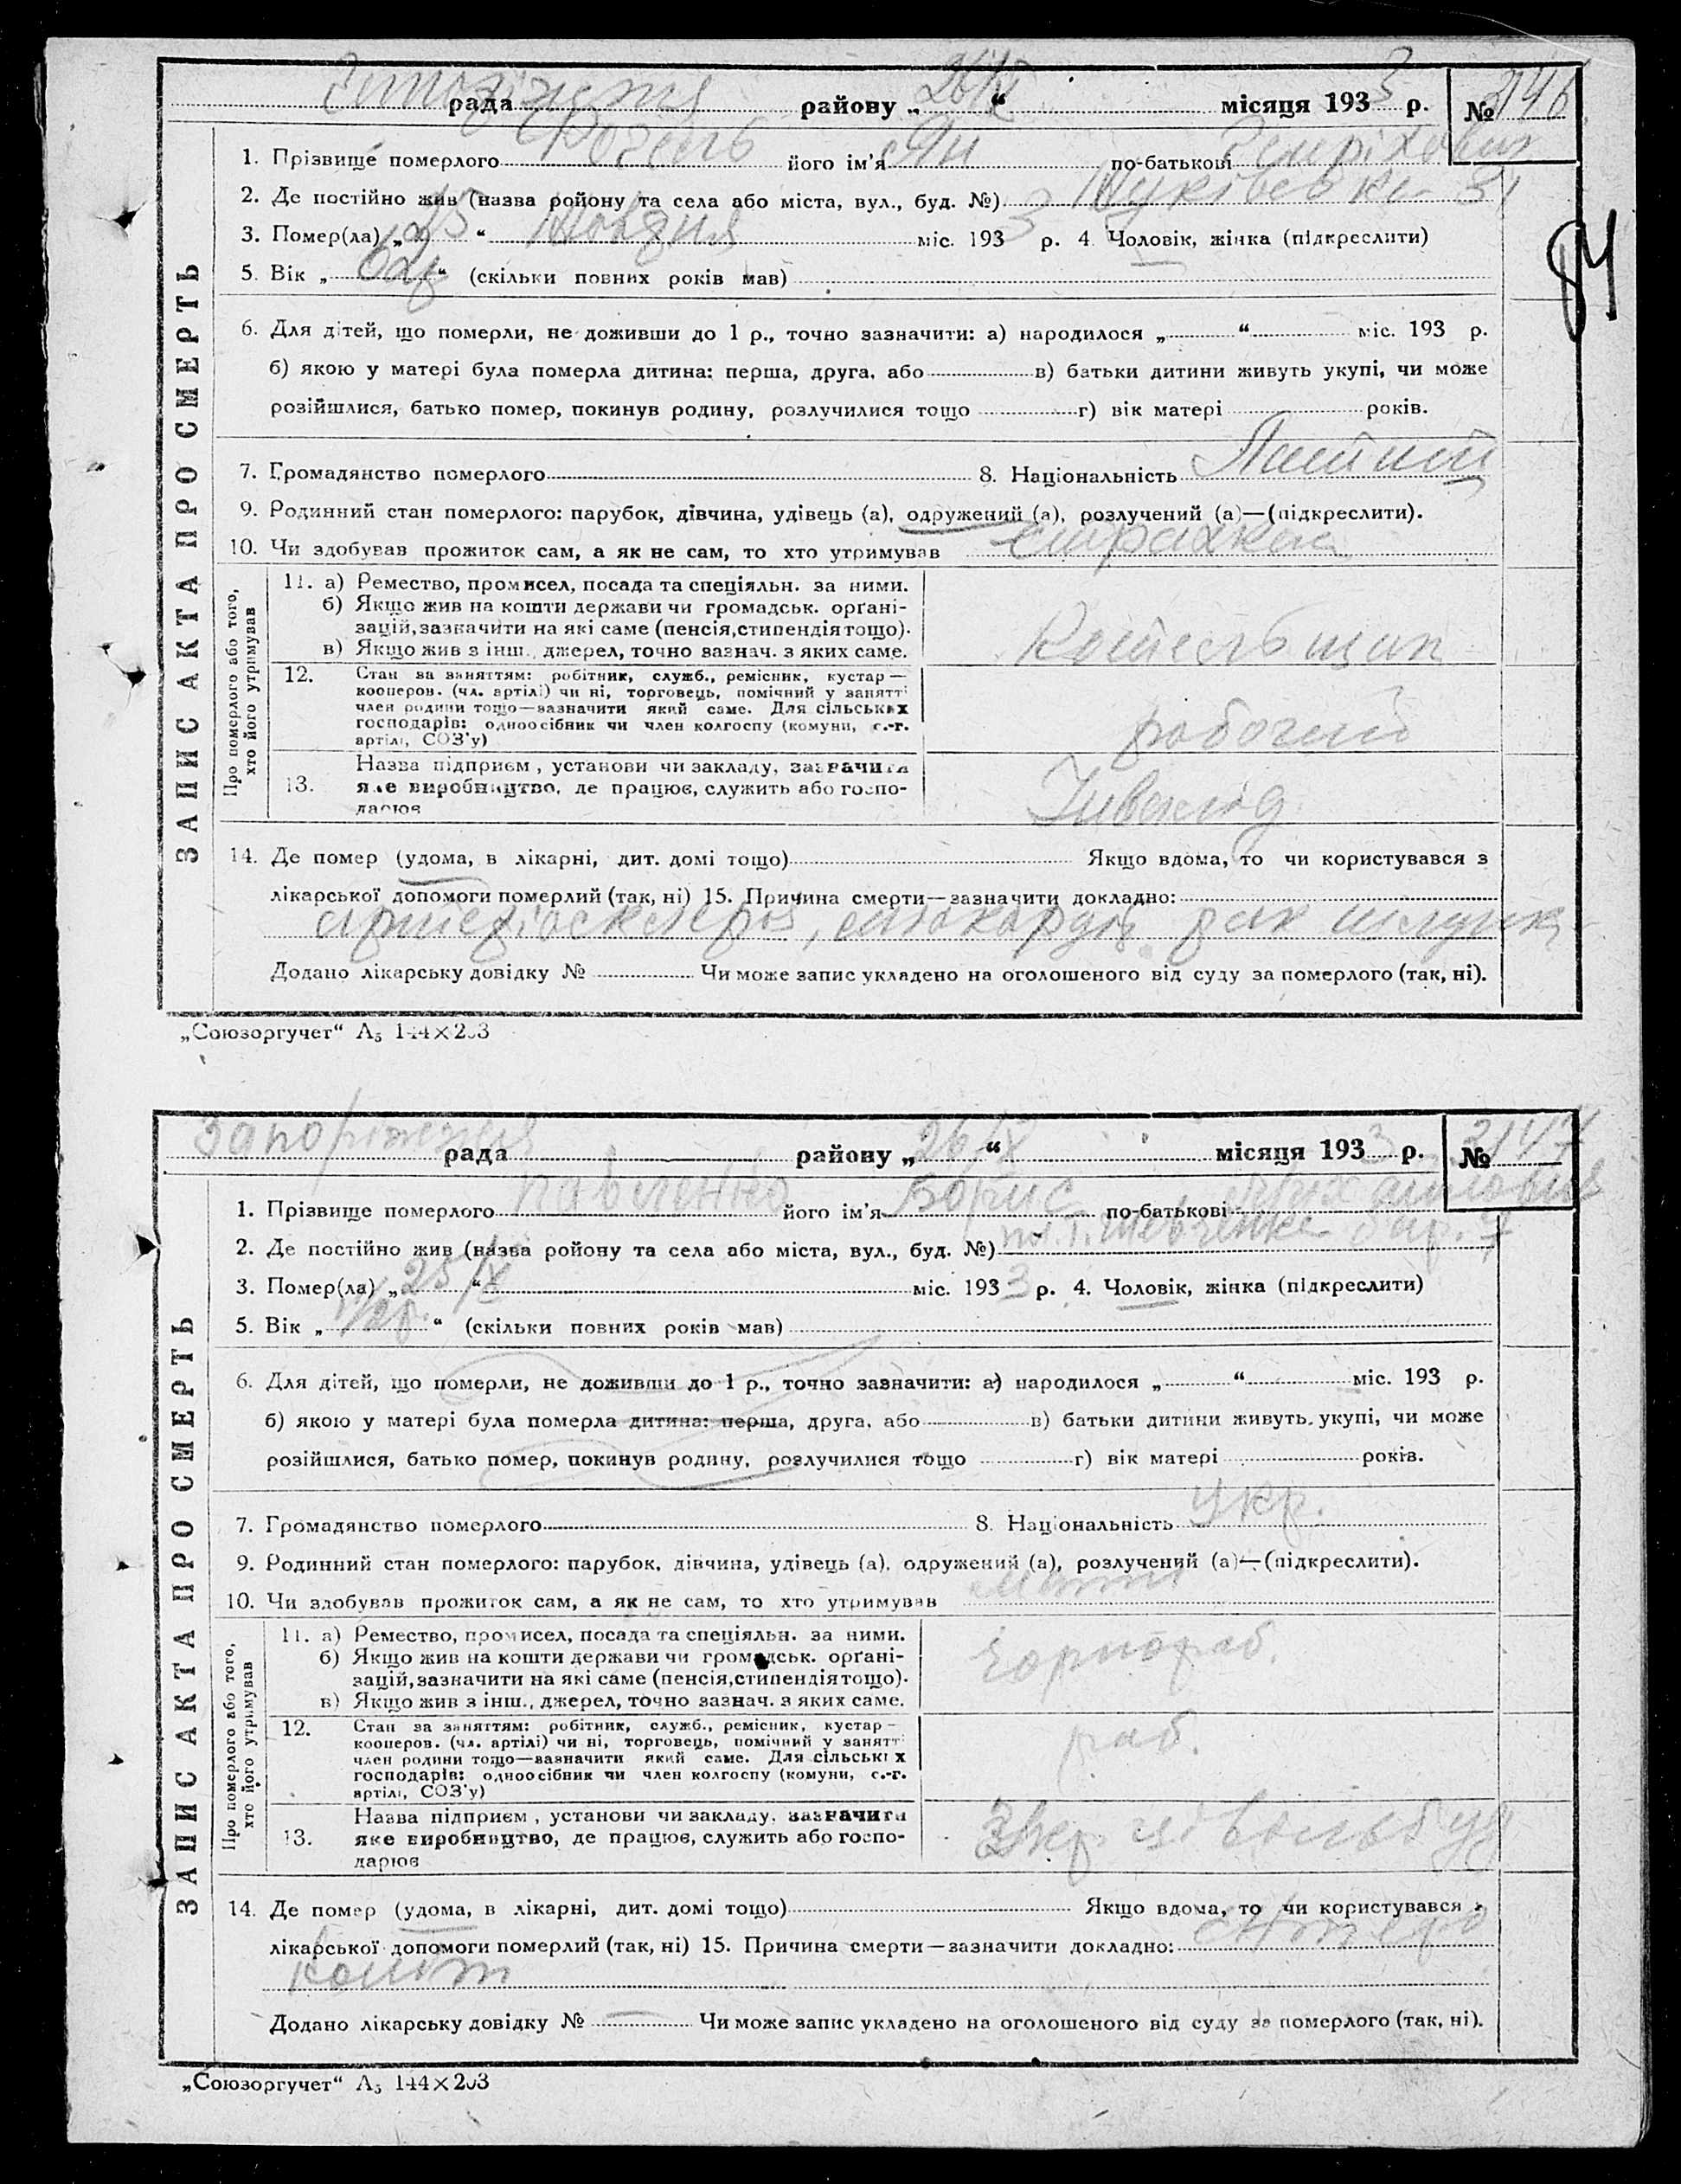 Запоріжжя рада района „26/X“ місяця 1933 р. № 2146
ЗАПИС АКТА ПРО СМЕРТЬ
1. Прізвище померлого його ім'я Ян по-батькові
2. Де постійно жив (назва району та села або міста, вул., буд. №) 31
3. Помер(ла) „25“ Жовтня міс. 1933 р. 4. Чоловік, жінка (підкреслити)
5. Вік „62р“ (скільки повних років мав)
6. Для дітей, що померли, не доживши до 1 р., точно зазначити: а) народилося „ “ міс. 193 р.
б) якою у матері була померла дитина: перша, друга, або в) батьки дитини живуть укупі, чи може
розійшлися, батько помер, покинув родину, розлучилися тощо г) вік матері років.
7. Громадянство померлого 8. Національність Латиш
9. Родинний стан померлого: парубок, дівчина, удівець (а), одружений (а), розлучений (а)—(підкреслити).
10. Чи здобував прожиток сам, а як не сам, то хто утримував страхкаса
Про померлого або того, хто його утримував
11. а) Ремество, промисел, посада та спеціяльн. за ними.
б) Якщо жив на кошти держави чи громадськ. орґані-
зацій, зазначити на які саме (пенсія, стипендія тощо).
в) Якщо жив з інш., джерел, точно зазнач. з яких саме.
Котельщик
12. Стан за заняттям: робітник, служб., ремісник, кустар—
кооперов. (чл. артілі) чи ні, торговець, помічний у занятті
член родини тощо—зазначити який саме. Для сільських
господарів: одноосібник чи член колгоспу (комуни, с.-г.
артілі, СОЗ'у)
робочий
13. Назва підприєм., установи чи закладу, зазначити
яке виробництво, де працює, служить або госпо-
дарює
Інвалід
14. Де помер (удома, в лікарні, дит. домі тощо) Якщо вдома, то чи користувався з
лікарської допомоги померлий (так, ні) 15. Причина смерти—зазначити докладно:
артеріосклероз, міокардіт рак шлунка
Додано лікарську довідку № Чи може запис укладено на оголошеного від суду за померлого (так, ні).
„Союзоргучет“ А₅ 144×203
84
Запоріжжя рада району „26/X“ місяця 1933 р. № 2147
ЗАПИС АКТА ПРО СМЕРТЬ
1. Прізвище померлого Павленко його ім'я Борис по-батькові Михайлович
2. Де постійно жив (назва району та села або міста, вул., буд. №) Шевченка бар. 7
3. Помер(ла) „25/X“ міс. 1933 р. 4. Чоловік, жінка (підкреслити)
5. Вік „ “ (скільки повних років мав)
6. Для дітей, що померли, не доживши до 1 р., точно зазначити: а) народилося „ “ міс. 193 р.
б) якою у матері була померла дитина: перша, друга, або в) батьки дитини живуть укупі, чи може
розійшлися, батько помер, покинув родину, розлучилися тощо г) вік матері років.
7. Громадянство померлого 8. Національність Укр.
9. Родинний стан померлого: парубок, дівчина, удівець (а), одружений (а), розлучений (а)—(підкреслити).
10. Чи здобував прожиток сам, а як не сам, то хто утримував мати
Про померлого або того, хто його утримував
11. а) Ремество, промисел, посада та спеціяльн. за ними.
б) Якщо жив на кошти держави чи громадськ. орґані-
зацій, зазначити на які саме (пенсія, стипендія тощо).
в) Якщо жив з інш., джерел, точно зазнач. з яких саме.
Чорнораб.
12. Стан за заняттям: робітник, служб., ремісник, кустар—
кооперов. (чл. артілі) чи ні, торговець, помічний у занятті
член родини тощо—зазначити який саме. Для сільських
господарів: одноосібник чи член колгоспу (комуни, с.-г.
артілі, СОЗ'у)
раб.
13. Назва підприєм., установи чи закладу, зазначити
яке виробництво, де працює, служить або госпо-
дарює
14. Де помер (удома, в лікарні, дит. домі тощо) Якщо вдома, то чи користувався з
лікарської допомоги померлий (так, ні) 15. Причина смерти—зазначити докладно: Ентеро
коліт
Додано лікарську довідку № — Чи може запис укладено на оголошеного від суду за померлого (так, ні).
„Союзоргучет“ А₅ 144×203